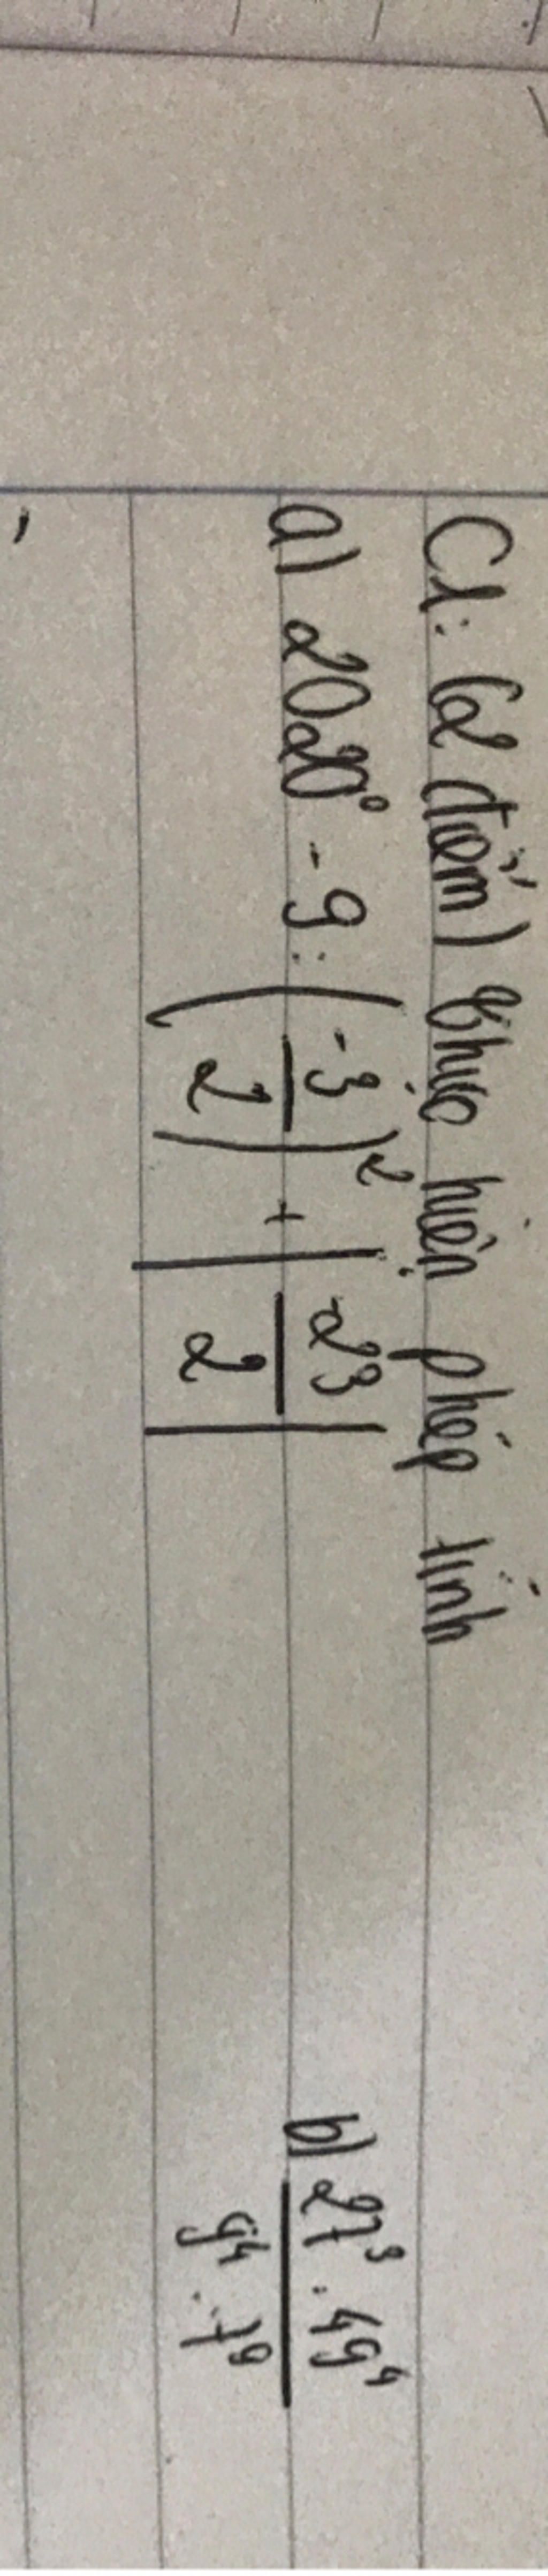 C1: (2 điểm) Thực hiện phép tính
a) 2020⁰ - 9 : (-3/2)² + |-23/2| b) 27³ . 49⁴ / 9⁴ . 7⁹